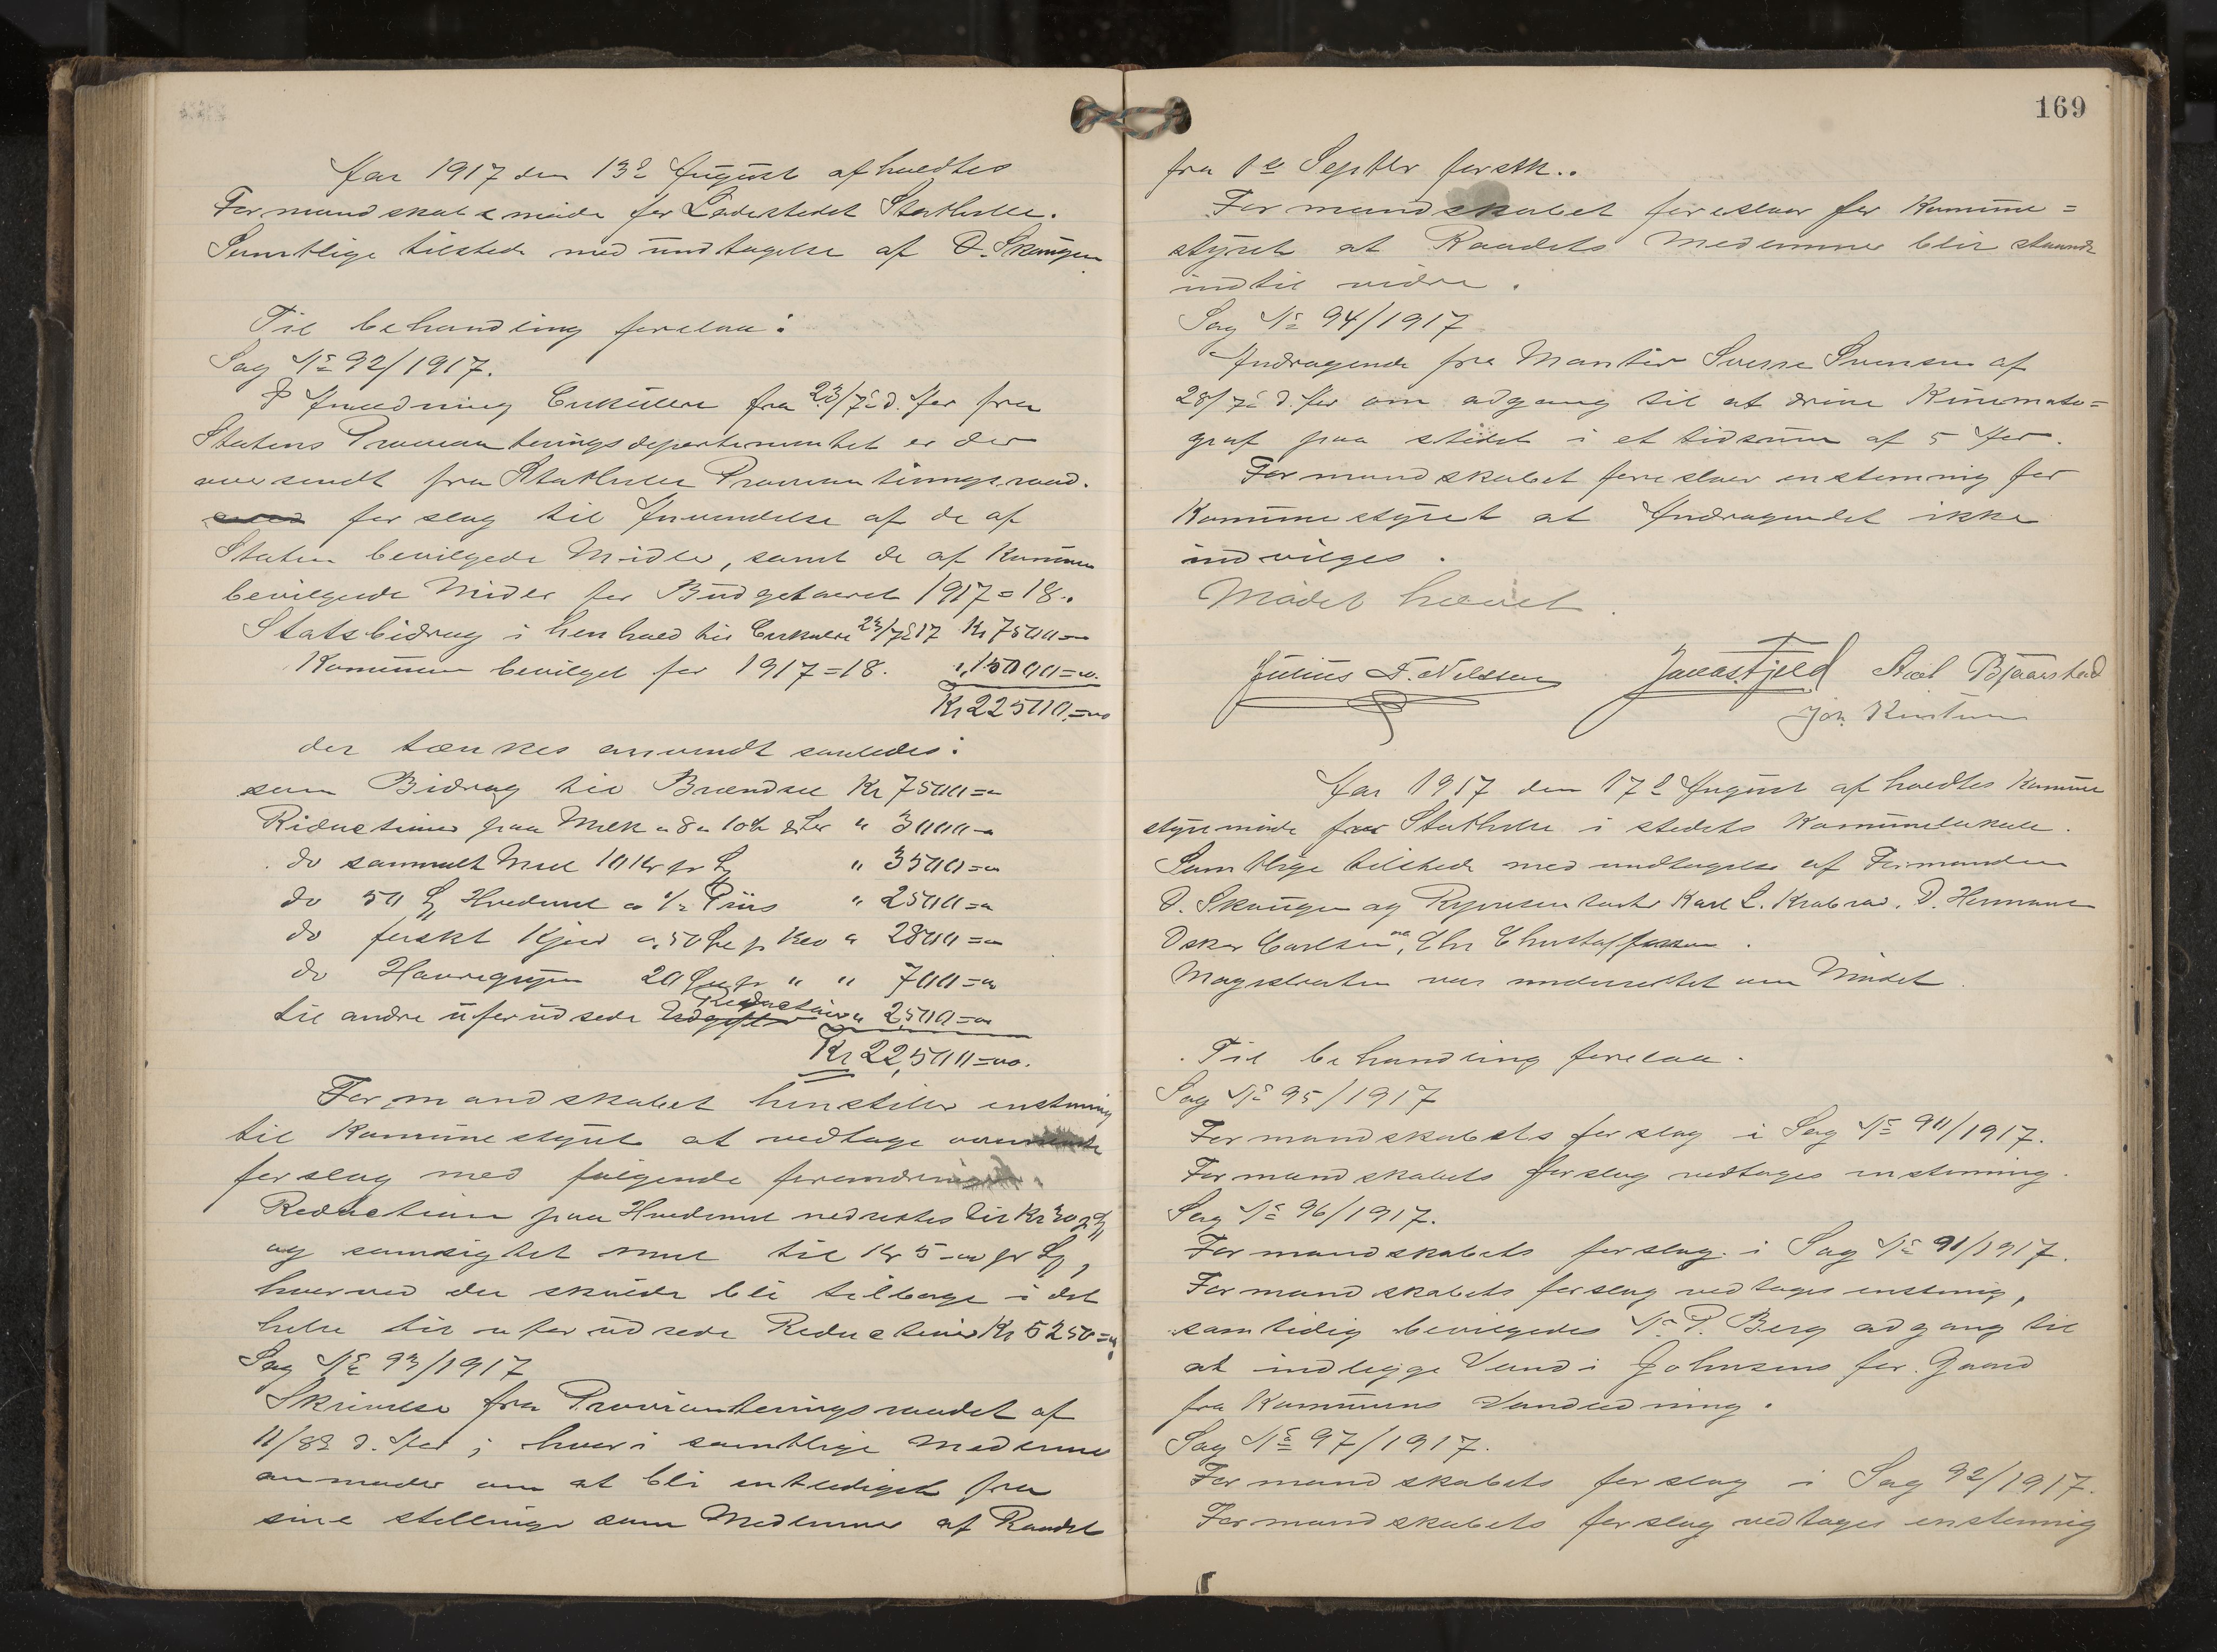 Aar 1917 den 13de August afholdtes
Formandskabsmøde for Ladestedet Stathelle.
Samtlige tilstede med undtagelse af D. Skougen
Til behandling forelaa:
Sag No 92/1917.
I Anledning Cirkulære fra 23/7 d. Aar fra
Statens Provianteringsdepartementet er der
oversendt fra Stathelle Provianteringsraad
forslag til Anvendelse af de af
Staten bevilgede Midler, samt de af Kommunen
bevilgede Midler for Budgetaaret 1917=18.
Statsbidrag i henhold til Cirkulære 23/7 17 Kr 7500=00
Kommunen bevilget for 1917=18. „ 15000=00.
Kr 22500=00
der tænkes anvendt saaledes:
som Bidrag til Brændsel Kr 7500=00
Reductioner paa Melk a 8 a 10 Øre Liter " 3000=00
do sammalt Mel 10 Kr pr Sk " 3500=00
do 50 Sk Hvedemel a 1/2 Priis " 2500=00
do ferskt Kjød a 50 Øre pr Kilo " 2800=00
do Havregryn 20 Øre pr " " 700=00
til andre uforudsede Udgifter Reductioner " 2500=00
Kr 22,500=00.
Formandskabet henstiller enstemmig
til Kommunestyret at vedtage
forslag med følgende forandring
Reduction paa Hvedemel nedsettes til Kr 30 pr Sk
og samsigtet mel til Kr 5-00 pr Sk,
hvorved der skulde bli tilbage i det
hele til uforudsede Reductioner Kr 5250=00
Sag No 93/1917
Skrivelse fra Provianteringsraadet af
11/8 d. Aar; hvori samtlige Medlemmer
anmoder om at bli entlediget fra
sine stellinger som Medlemmer af Raadet
169
fra 1ste Septbr førstk..
Formandskabet foreslaar for Kommune=
styret at Raadets Medlemmer blir staaende
indtil videre.
Sag No 94/1917
Andragende fra Montør Sverre Svensen af
28/7 d. Aar om adgang til at drive Kinemato=
graf paa stedet i et tidsrum af 5 Aar.
Formandskabet foreslaar enstemmig for
Kommunestyret at Andragendet ikke
indvilges.
Mødet hævet.
Julius F. Nilssen Jonas Fjeld Axel Bjaarstad
Joh. Kristensen
Aar 1917 den 17de August afholdtes Kommune
styremøde for Stathelle i stedets Kommunelokale.
Samtlige tilstede med undtagelse af Formanden
D. Skougen og Representanter Karl L. Krabrød, D. Hermansen
Oskar Carlsen og Chr Christoffersen.
Magistraten var underrettet om Mødet.
Til behandling forelaa.
Sag No 95/1917
Formandskabets forslag i Sag No 90/1917.
Formandskabets forslag vedtages enstemmig.
Sag No 96/1917.
Formandskabets forslag i Sag No 91/1917.
Formandskabets forslag vedtages enstemig,
samtidig bevilgedes N. P. Berg adgang til
at indlegge Vand i Johnsens før. Gaard
fra Kommunens Vandledning.
Sag No 97/1917.
Formandskabets forslag i Sag 92/1917.
Formandskabets forslag vedtages enstemmig